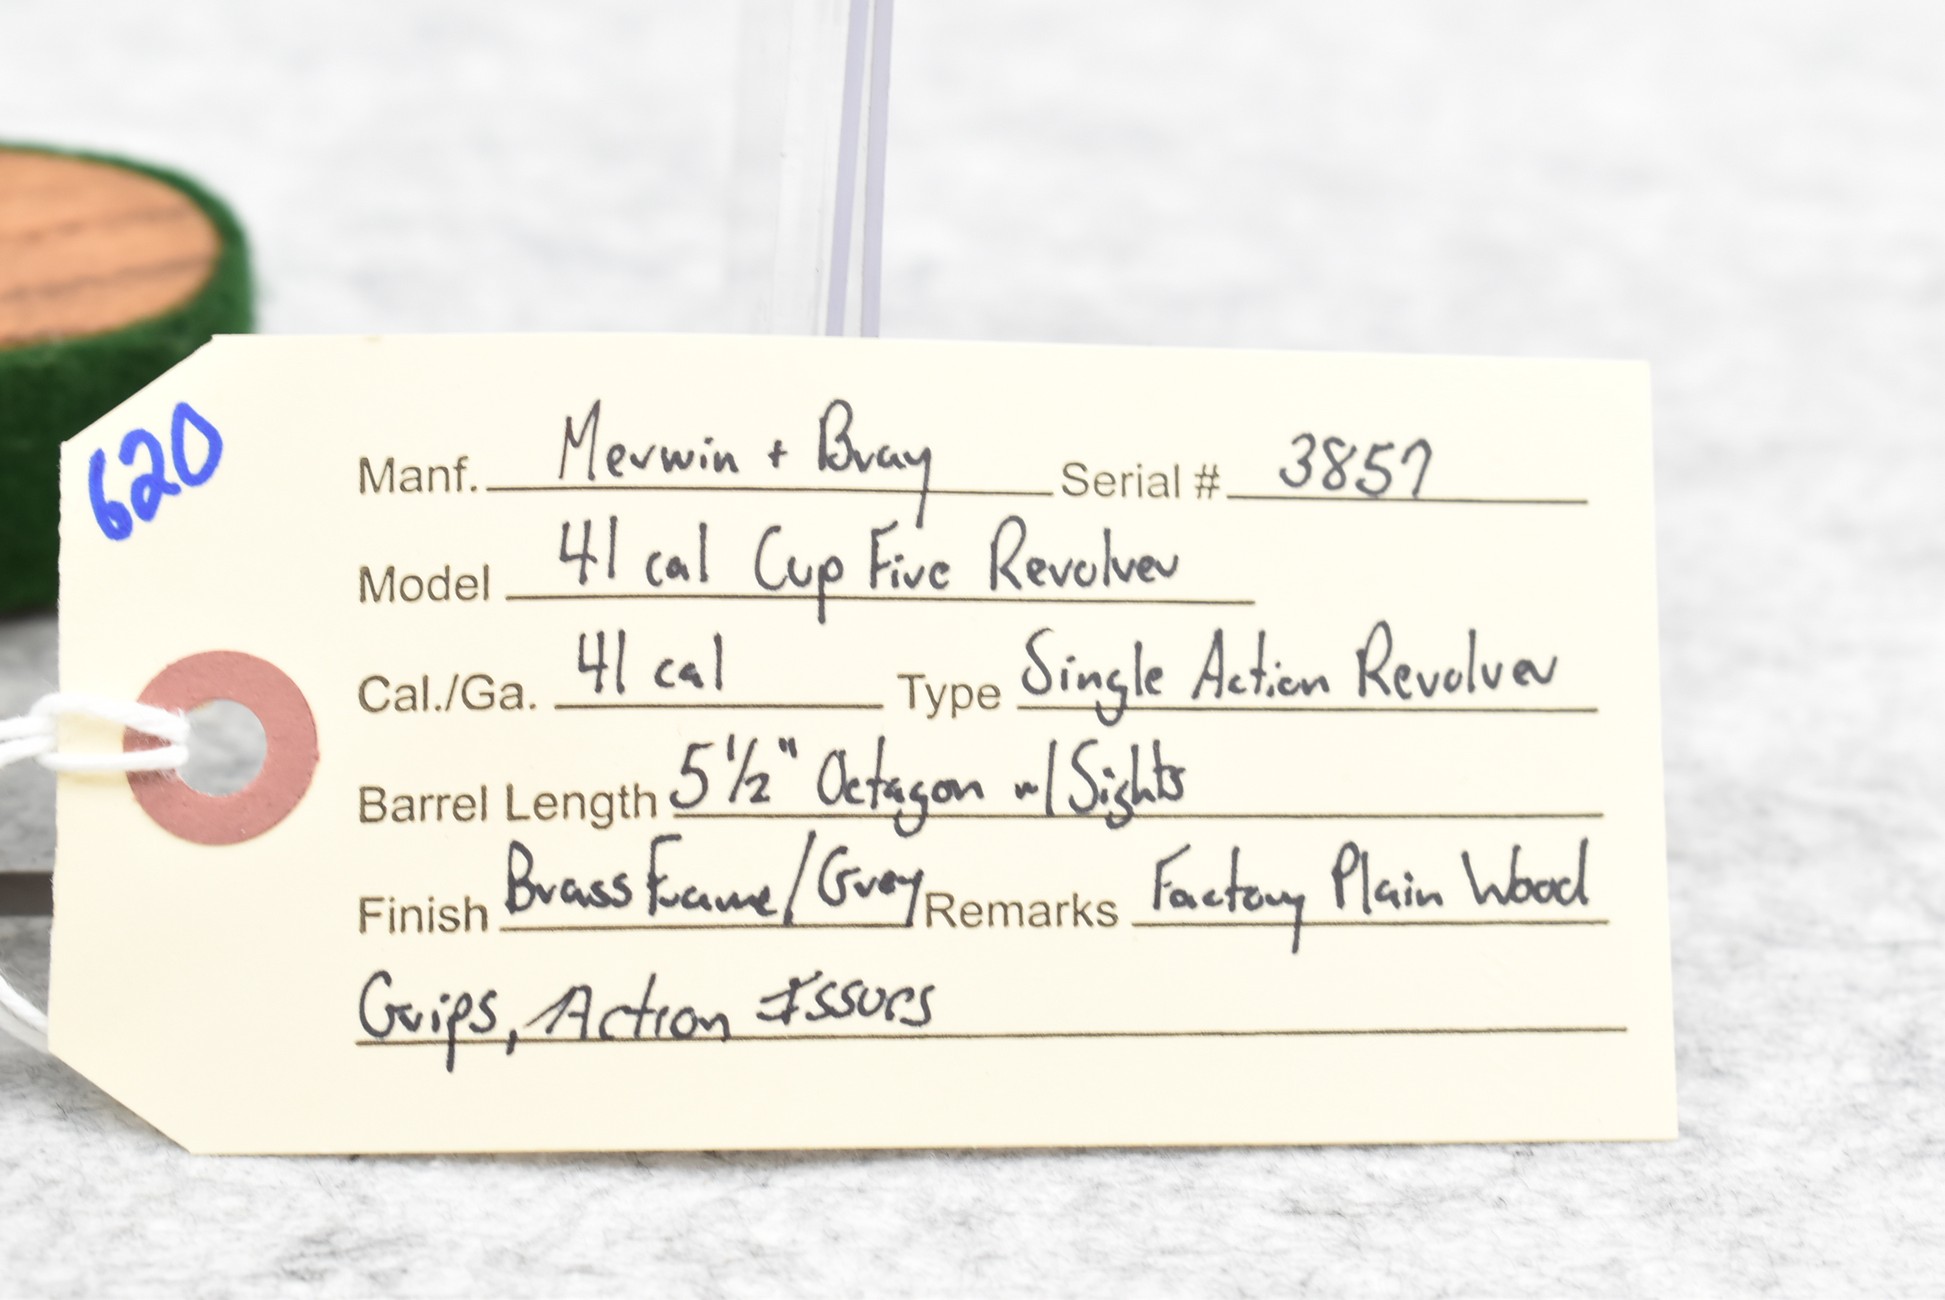 620
Manf. Merwin + Bray Serial # 3857
Model 41 cal Cup Fire Revolver
Cal./Ga. 41 cal Type Single Action Revolver
Barrel Length 5 1/2" Octagon w/ Sights
Finish Brass Frame/Grey Remarks Factory Plain Wood
Grips, Action Issues